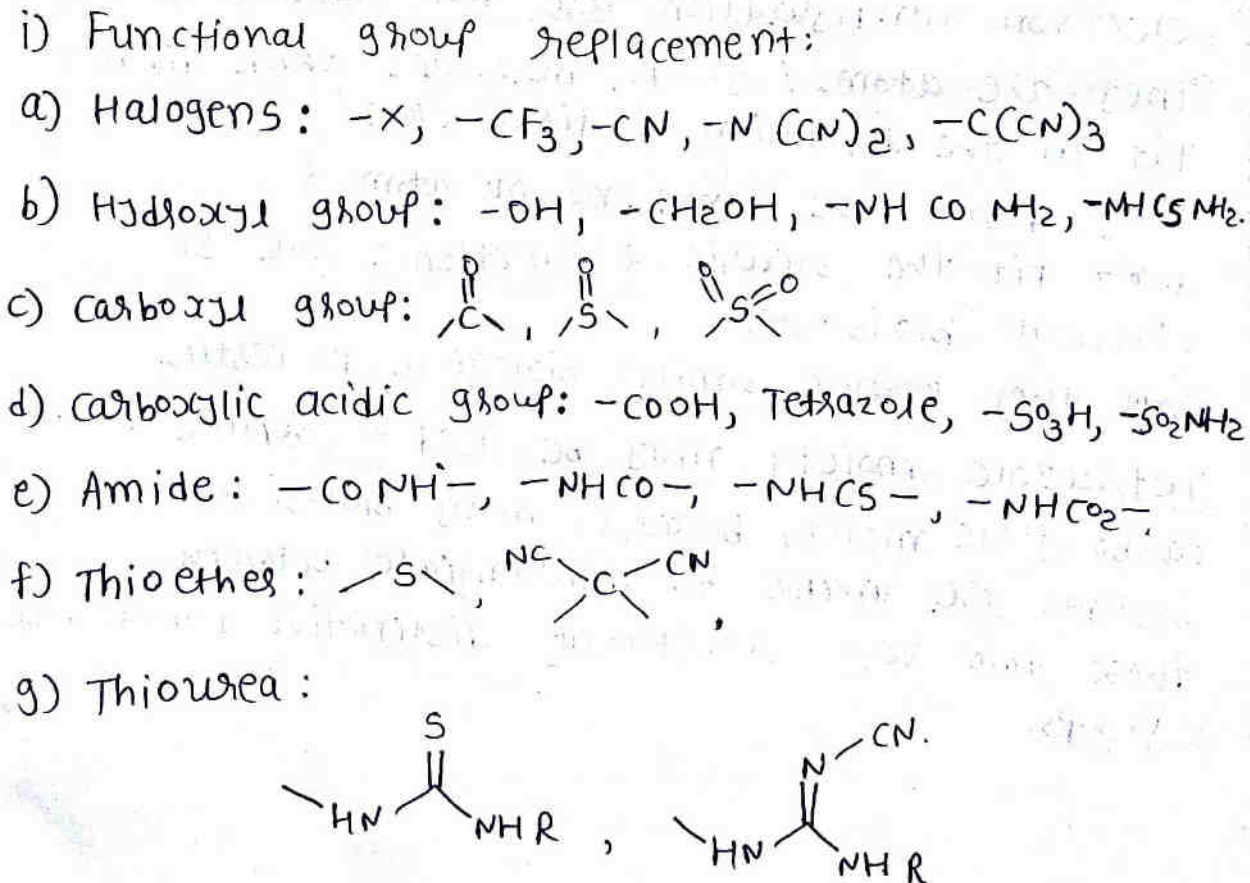 i) Functional group replacement:
a) Halogens: -X, -CF3, -CN, -N (CN)2, -C(CN)3
b) Hydroxyl group: -OH, -CH2OH, -NH CO NH2, -NHCSNH2.
c) carboxyl group: O C, O S, O S O
d) carboxylic acidic group: -COOH, Tetrazole, -SO3H, -SO2NH2
e) Amide: -CO NH-, -NHCO-, -NHCS-, -NHCO2-.
f) Thioether: S, NC C CN,
g) Thiourea:
S HN NH R, N CN. HN NH R